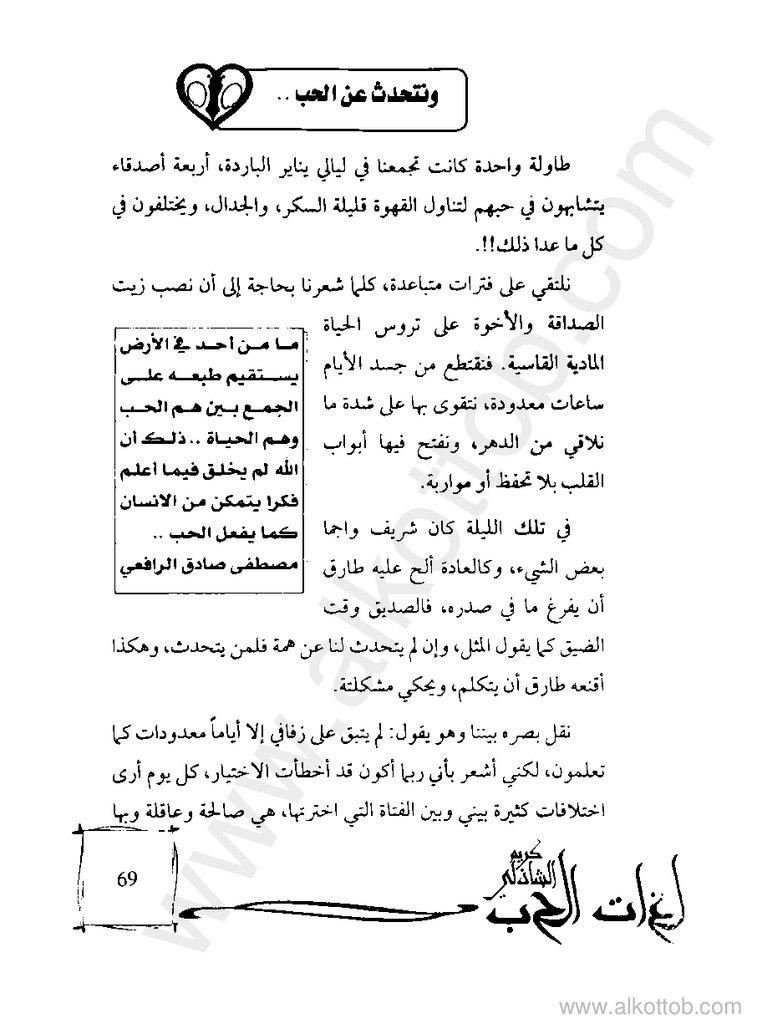 ونتحدث عن الحب ..
طاولة واحدة كانت تجمعنا في ليالي يناير الباردة، أربعة أصدقاء
يتشابهون في حبهم لتناول القهوة قليلة السكر، والجدال، ويختلفون في
كل ما عدا ذلك!!.
نلتقي على فترات متباعدة، كلما شعرنا بحاجة إلى أن نصب زيت
الصداقة والأخوة على تروس الحياة
المادية القاسية. فنقتطع من جسد الأيام
ساعات معدودة، نتقوى بها على شدة ما
نلاقي من الدهر، ونفتح فيها أبواب
القلب بلا تحفظ أو مواربة.
ما من أحد في الأرض
يستقيم طبعه على
الجمع بين هم الحب
وهم الحياة .. ذلك أن
الله لم يخلق فيما أعلم
فكرا يتمكن من الانسان
كما يفعل الحب ..
مصطفى صادق الرافعي
في تلك الليلة كان شريف واجما
بعض الشيء، وكالعادة ألح عليه طارق
أن يفرغ ما في صدره، فالصديق وقت
الضيق كما يقول المثل، وإن لم يتحدث لنا عن همة فلمن يتحدث، وهكذا
أقنعه طارق أن يتكلم، ويحكي مشكلتة.
نقل بصره بيننا وهو يقول: لم يتبق على زفافي إلا أياماً معدودات كما
تعلمون، لكني أشعر بأني ربما أكون قد أخطأت الاختيار، كل يوم أرى
اختلافات كثيرة بيني وبين الفتاة التي اخترتها، هي صالحة وعاقلة وبها
لغات الحب
كريم
الشاذلي
69
www.alkottob.com
www.alkottob.com